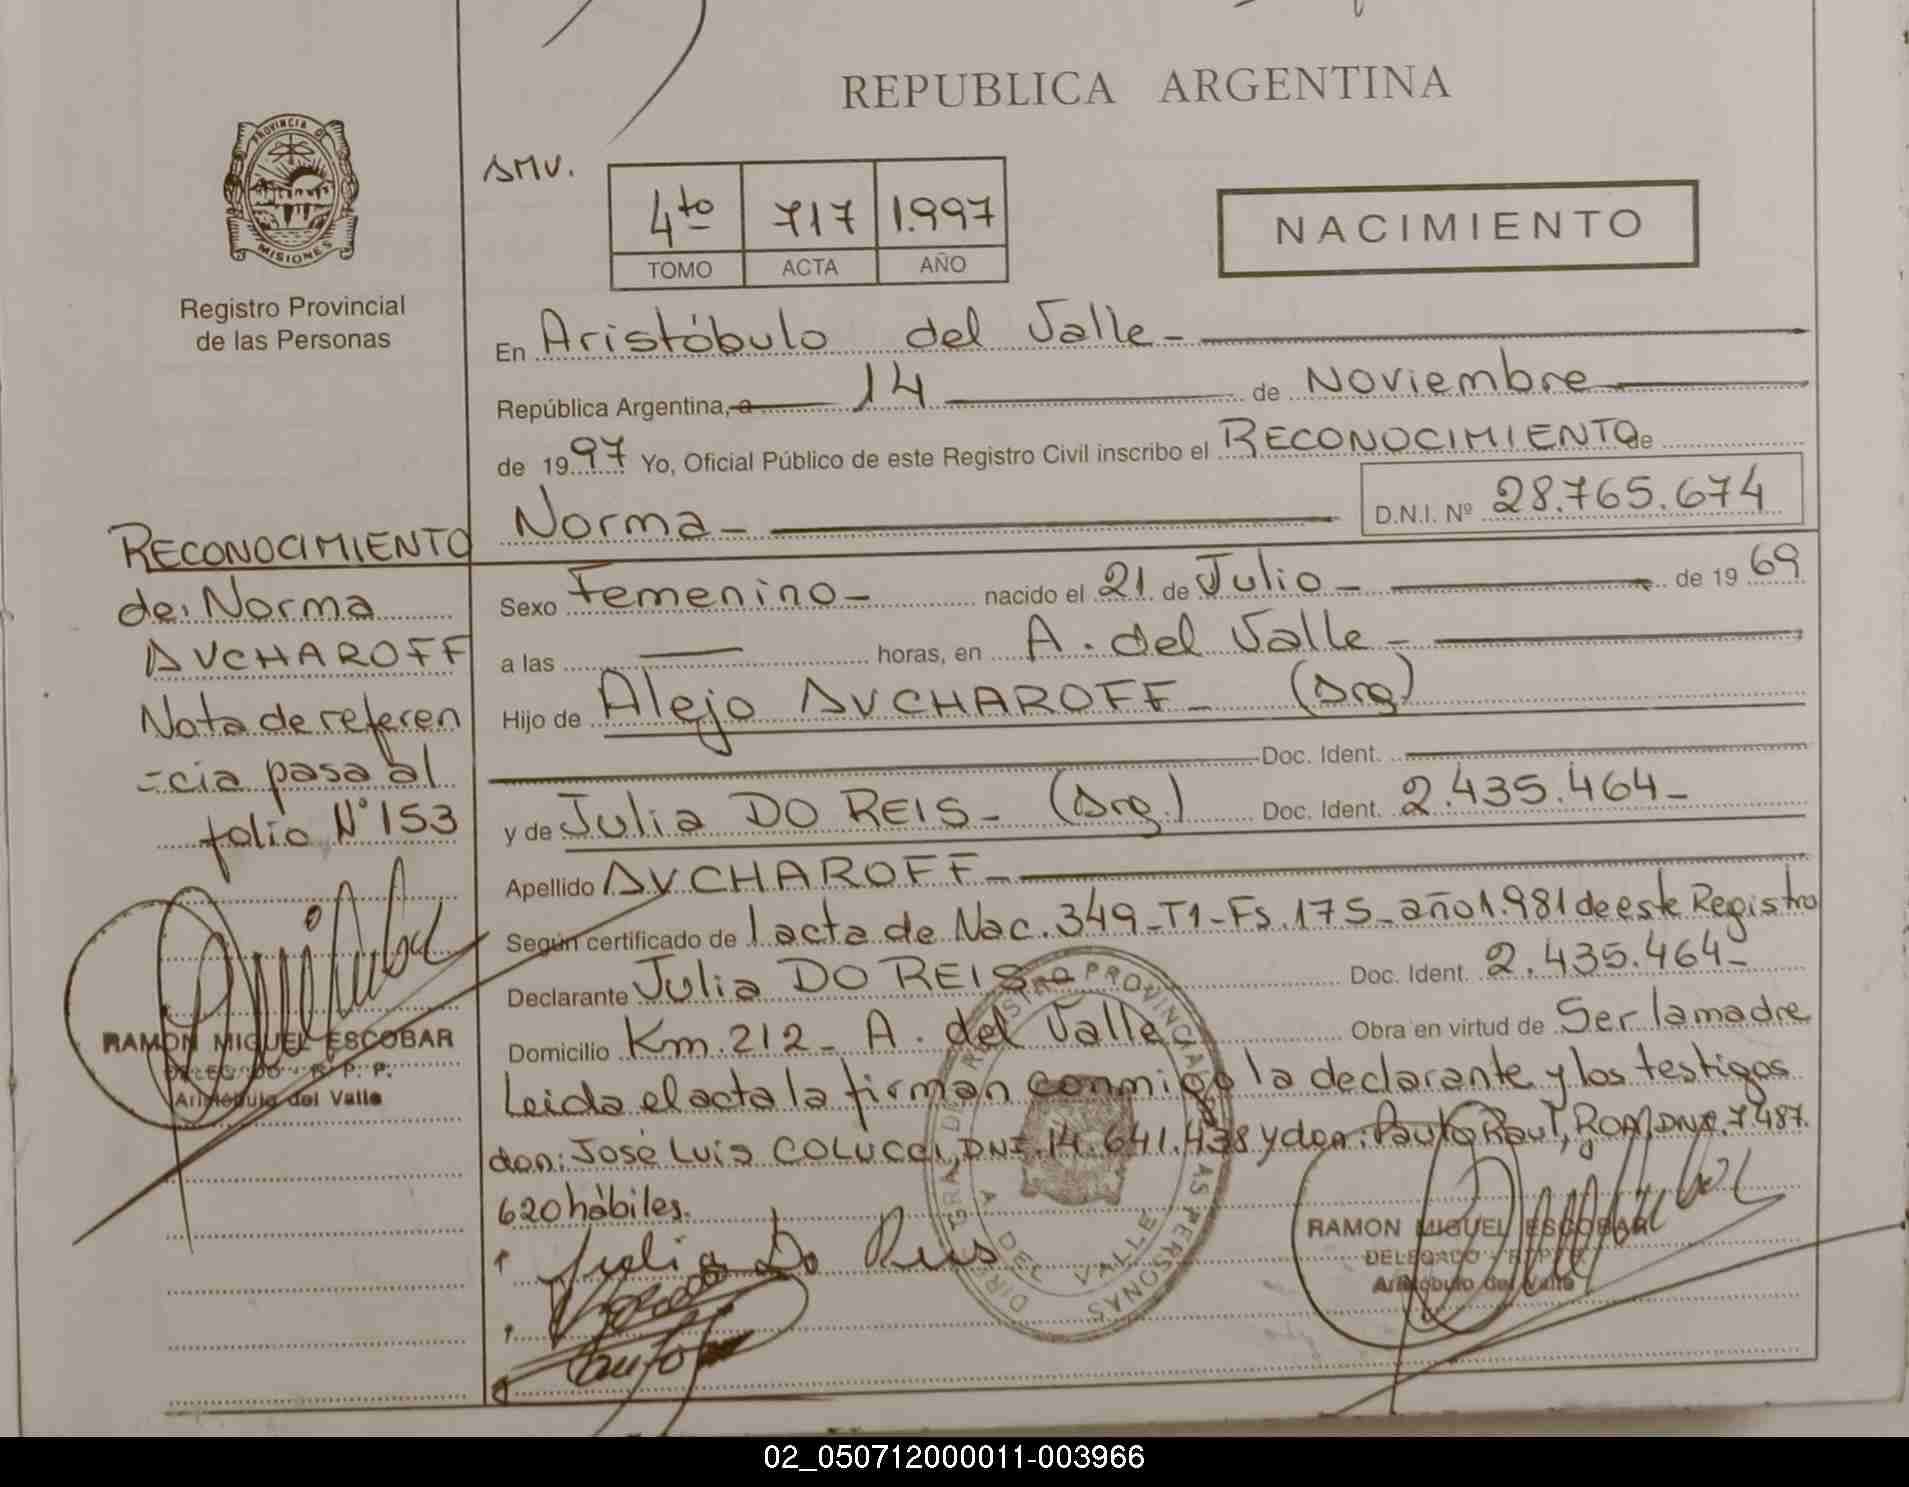 REPUBLICA ARGENTINA
PROVINCIA DE
MISIONES
Registro Provincial
de las Personas
SMV.
4to 717 1.997
TOMO ACTA AÑO
NACIMIENTO
En Aristóbulo del Valle-
República Argentina, a 14 de Noviembre
de 1997 Yo, Oficial Público de este Registro Civil inscribo el RECONOCIMIENTO de
Norma- D.N.I. Nº 28.765.674
Sexo Femenino- nacido el 21 de Julio- de 1969
a las — horas, en A. del Valle-
Hijo de Alejo SUCHAROFF- (Arg.)
Doc. Ident.
y de Julia DO REIS- (Arg.) Doc. Ident. 2.435.464-
Apellido SUCHAROFF-
Según certificado de 1 acta de Nac. 349-T1-Fs.175-año 1.981 de este Registro
Declarante Julia DO REIS- Doc. Ident. 2.435.464-
Domicilio Km.212- A. del Valle Obra en virtud de Ser la madre
Leida el acta la firman conmigo la declarante y los testigos
don: José Luis COLUCCI, DNI.14.641.438 y don: Paulo Raul, DNI.7.487.
620 hábiles.
Julia Do Reis
RECONOCIMIENTO
de: Norma
SUCHAROFF
Nota de referen
=cia pasa al
folio Nº 153
RAMON MIGUEL ESCOBAR
DELEGADO - R. P. P.
Aristóbulo del Valle
RAMON MIGUEL ESCOBAR
DELEGADO - R. P. P.
Aristóbulo del Valle
02_050712000011-003966